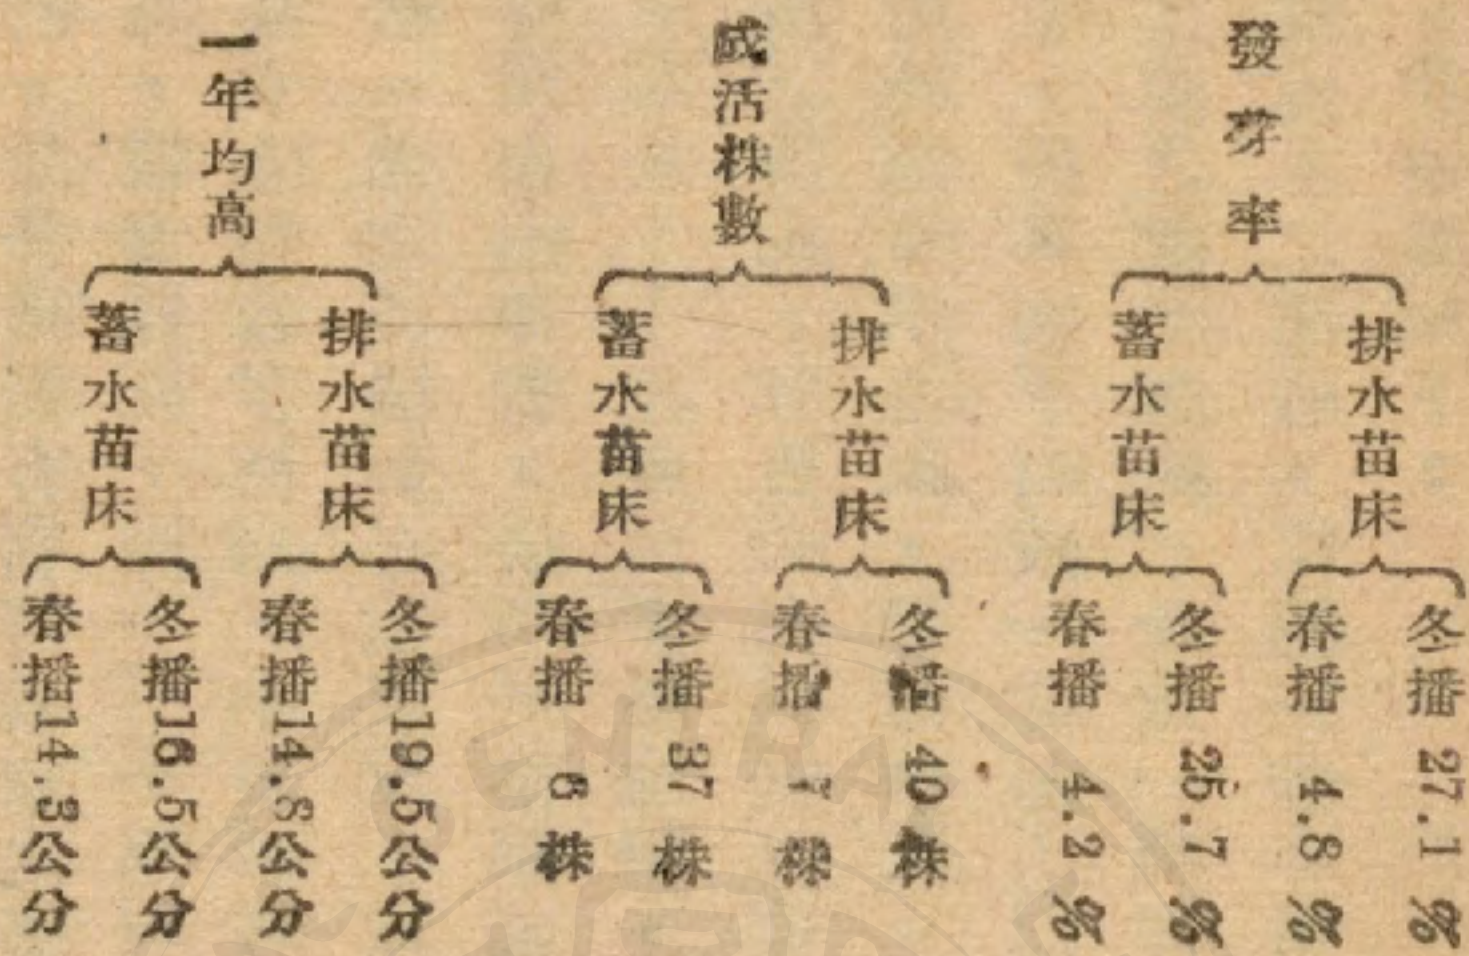 發芽率
排水苗床
冬播 27.1 %
春播 4.8 %
蓄水苗床
冬播 25.7 %
春播 4.2 %
成活株數
排水苗床
冬播 40 株
春播 7 株
蓄水苗床
冬播 37 株
春播 6 株
一年均高
排水苗床
冬播19.5公分
春播14.8公分
蓄水苗床
冬播16.5公分
春播14.3公分
CENTRA